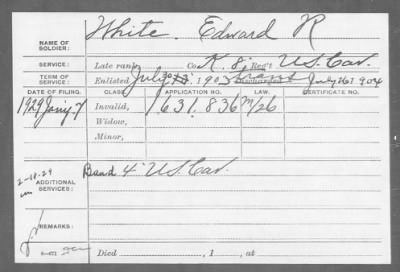 NAME OF SOLDIER: White, Edward R
SERVICE: Late rank, Co. K, 8 Reg't U.S. Cav.
TERM OF SERVICE: Enlisted July 1903 trans July 26 1904
DATE OF FILING. CLASS. APPLICATION NO. LAW. CERTIFICATE NO.
1929 Jan'y 7 Invalid, 1631.836 m/26
Widow,
Minor,
2-18-29
ADDITIONAL SERVICES: Band 4" U.S. Cav.
REMARKS:
Died , 1 , at